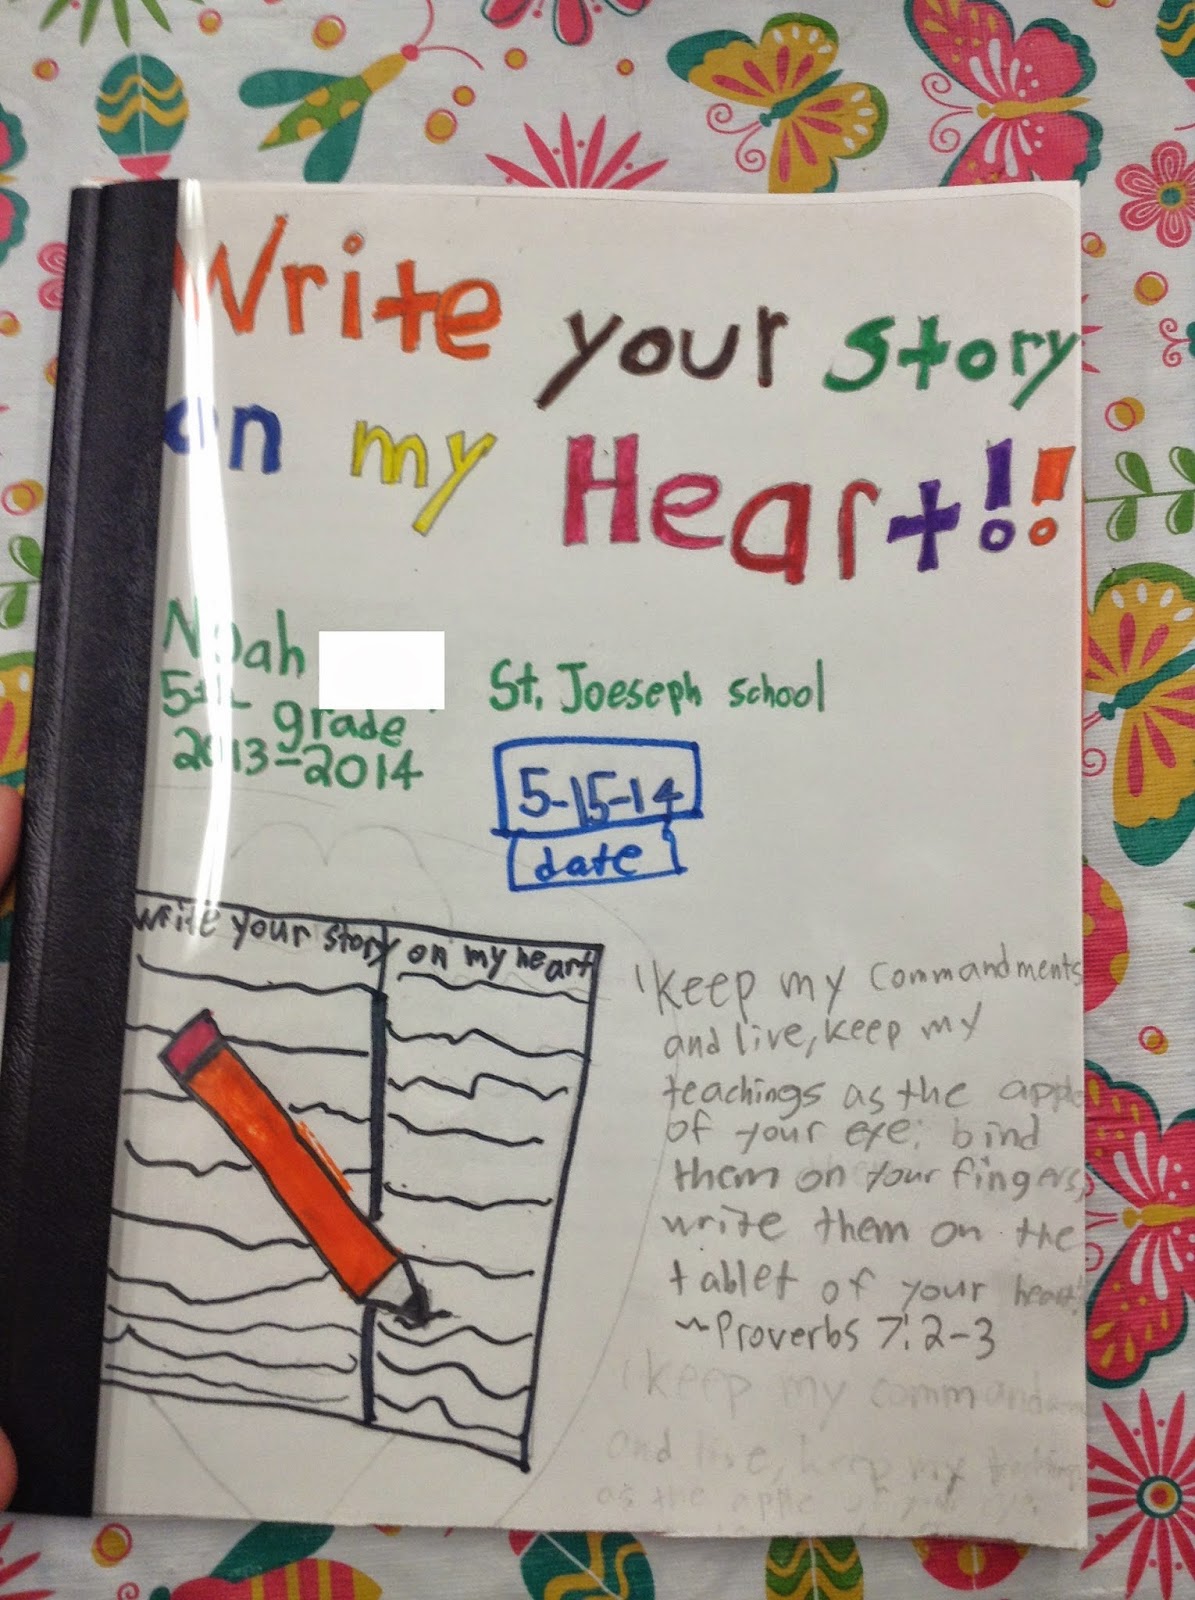 Write your story
on my Heart!!
Noah
5th grade
2013-2014
St. Joeseph school
5-15-14
date
write your story on my heart
keep my commandments
and live, keep my
teachings as the apple
of your eye; bind
them on your fingers,
write them on the
tablet of your heart."
~Proverbs 7:2-3
keep my command
and live, keep my
as the apple